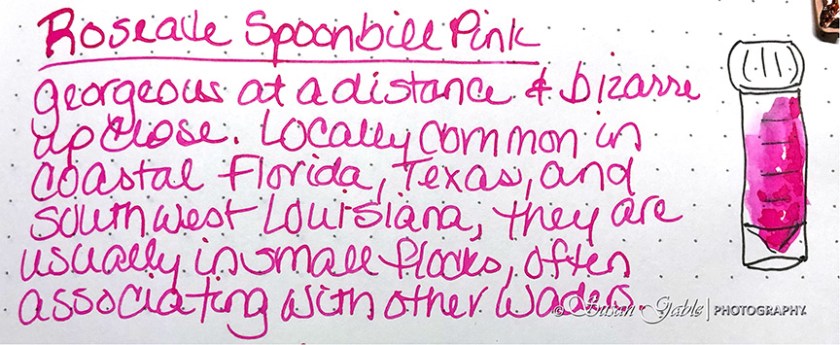 Roseate Spoonbill Pink
georgeous at a distance & bizarre
up close. Locally common in
coastal Florida, Texas, and
southwest Louisiana, they are
usually in small flocks, often
associating with other waders.
© Susan Gable | PHOTOGRAPHY